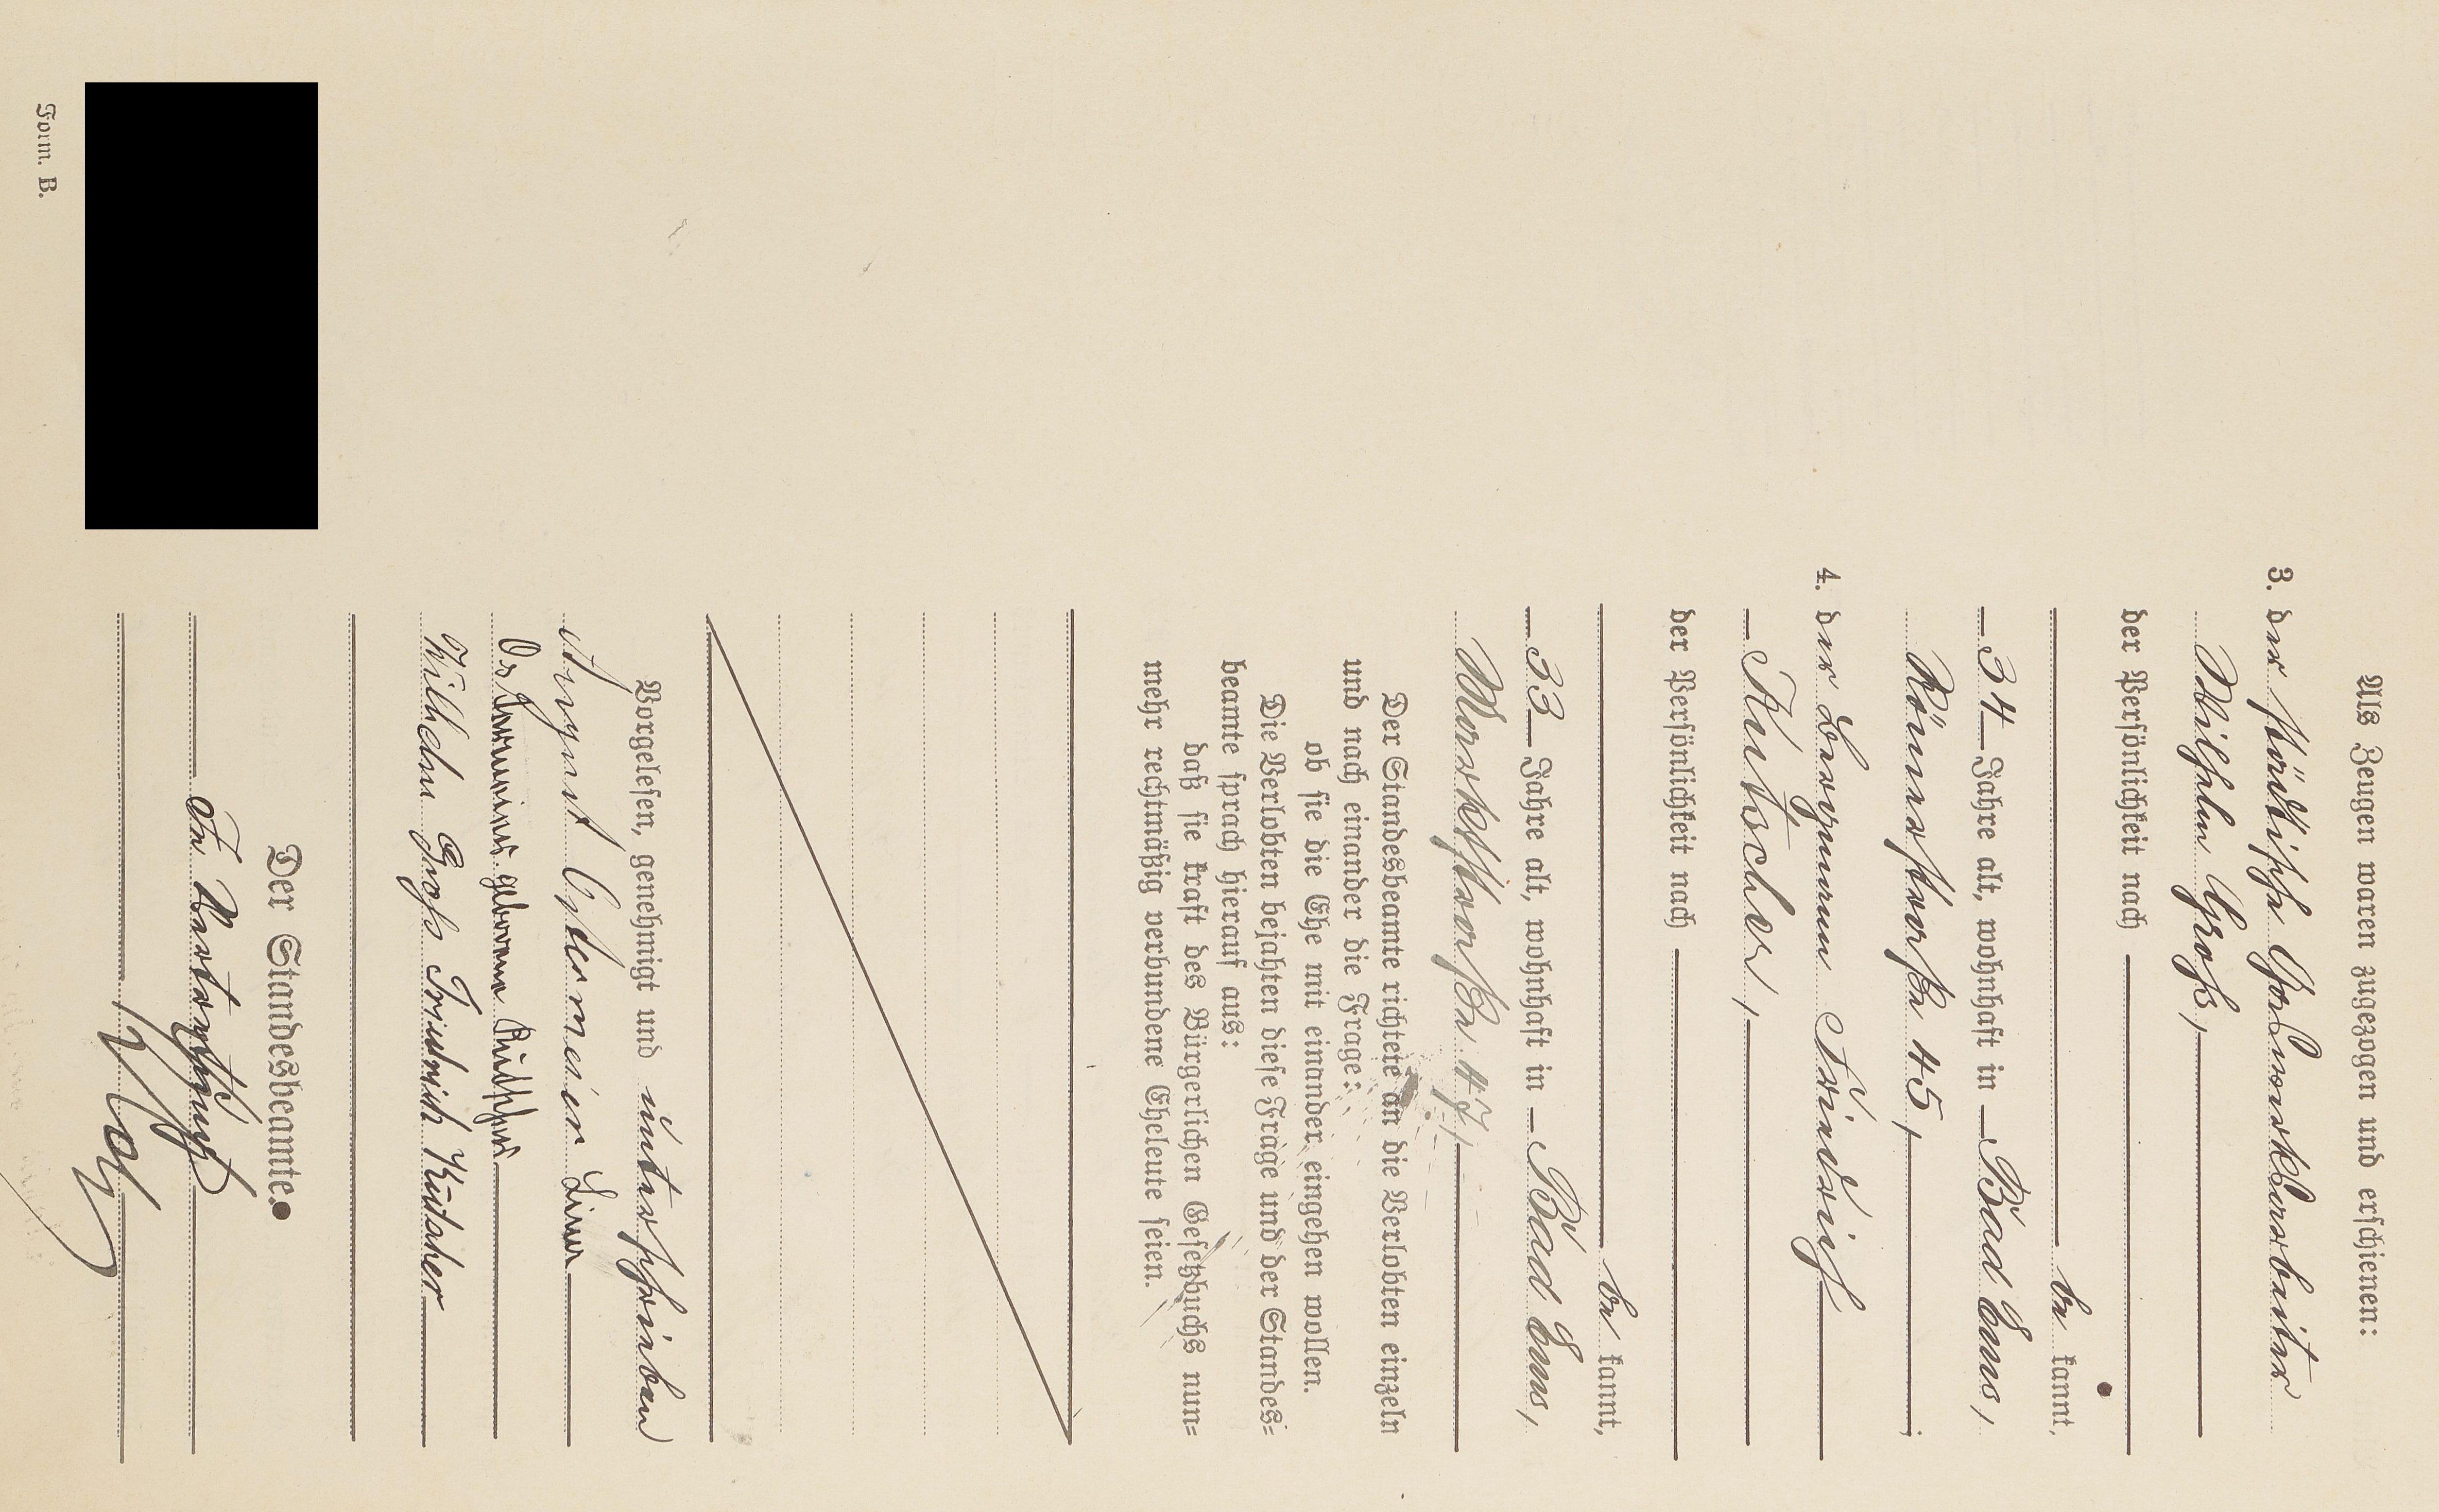 Als Zeugen waren zugezogen und erschienen:
3. der städtische Gaswerkarbeiter
Wilhelm Groß,
der Persönlichkeit nach
be kannt,
34 Jahre alt, wohnhaft in Bad Ems,
Römerstraße 45,
4. der Bergmann Friedrich
Kutscher,
der Persönlichkeit nach
be kannt,
33 Jahre alt, wohnhaft in Bad Ems,
Marktstraße 47,
Der Standesbeamte richtete an die Verlobten einzeln
und nach einander die Frage:
ob sie die Ehe mit einander eingehen wollen.
Die Verlobten bejahten diese Frage und der Standes-
beamte sprach hierauf aus:
daß sie kraft des Bürgerlichen Gesetzbuchs nun-
mehr rechtmäßig verbundene Eheleute seien.
Vorgelesen, genehmigt und unterschrieben
August Ostermeier Lina
Ostermeier geborene
Wilhelm Groß Friedrich Kutscher
Der Standesbeamte.
In Vertretung
Form. B.